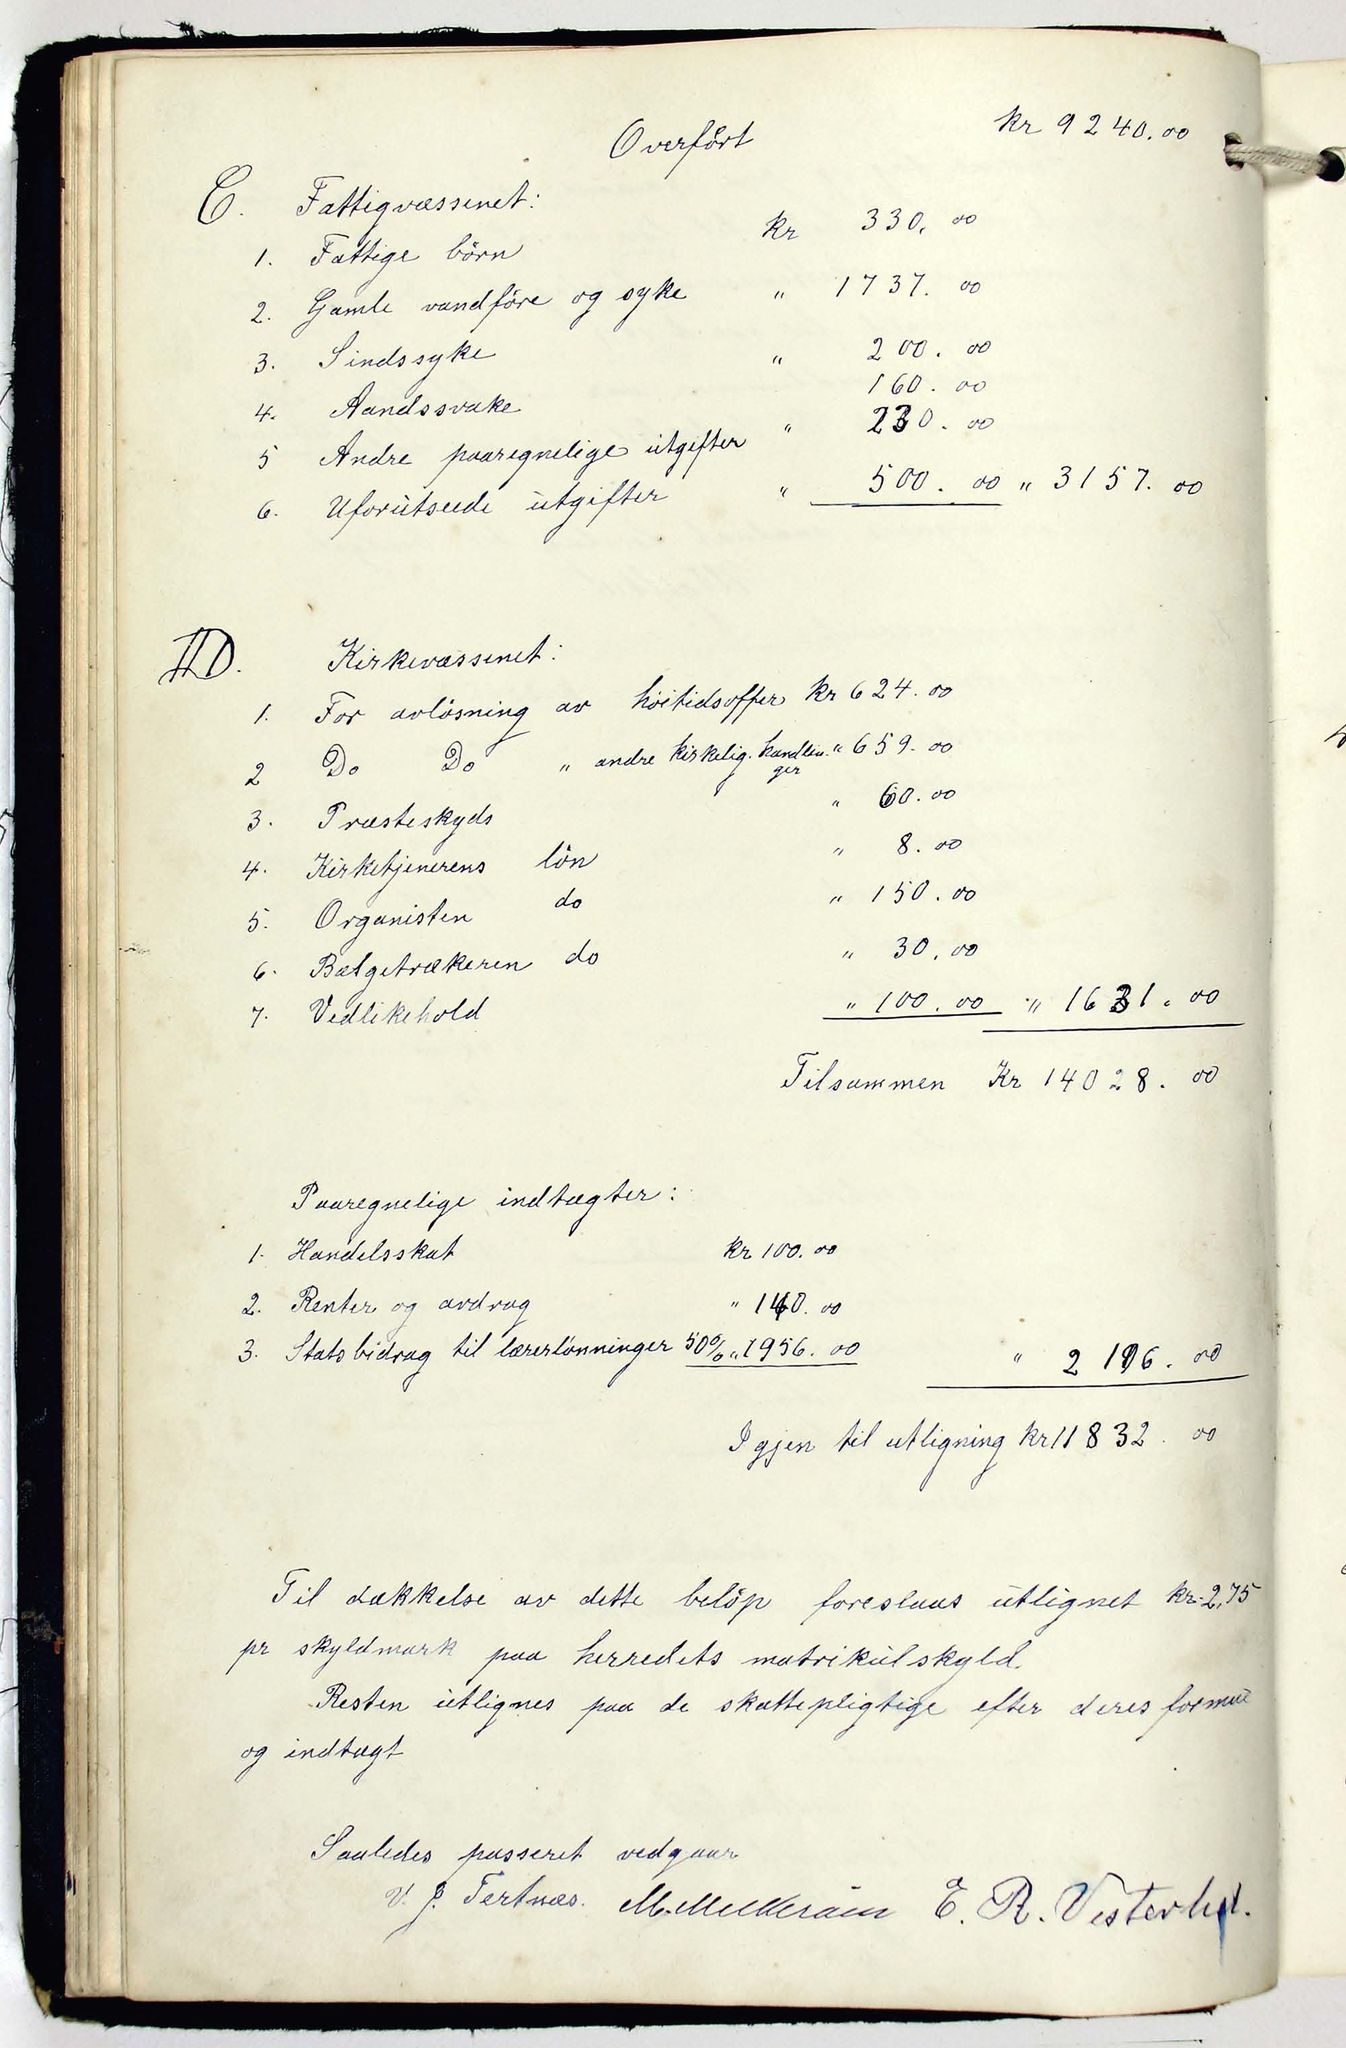 Overført kr 9240.00
C. Fattigvæssenet:
1. Fattige börn kr 330.00
2. Gamle vandföre og syke " 1737.00
3. Sindssyke " 200.00
4. Aandssvake 160.00
5 Andre paaregnelige utgifter " 230.00
6. Uforutseede utgifter " 500.00 " 3157.00
D. Kirkevæssenet:
1. For avlösning av höitidsoffer kr 624.00
2 Do Do " andre kirkelig. handlin- " 659.00
ger
3. Præsteskyds " 60.00
4. Kirketjenerens lön " 8.00
5. Organisten do " 150.00
6. Bælgetrækeren do " 30.00
7. Vedlikehold " 100.00 " 1631.00
Tilsammen Kr 14028.00
Paaregnelige indtægter:
1. Handelsskat kr 100.00
2. Renter og avdrag " 140.00
3. Statsbidrag til lærerlönninger 50% " 1956.00 " 2196.00
Igjen til utligning kr 11832.00
Til dækkelse av dette belöp foreslaas utlignet kr. 2,75
pr skyldmark paa herredets matrikulskyld.
Resten utlignes paa de skattepligtige efter deres formue
og indtægt
Saaledes passeret vedgaar
V. J. Tertnæs. E. R. Vesterhed.